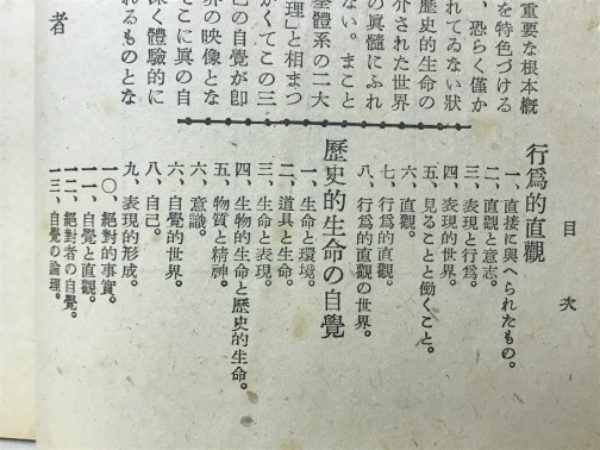 重要な根本概
を特色づける
、恐らく僅か
れてゐない狀
歷史的生命の
介された世界
の眞髓にふれ
ない。まこと
基體系の二大
理」と相まつ
かくてこの三
己の自覺が卽
界の映像とな
そこに眞の自
深く體驗的に
れるものとな
者
目次
行爲的直觀
一、直接に與へられたもの。
二、直觀と意志。
三、表現と行爲。
四、表現的世界。
五、見ることと働くこと。
六、直觀。
七、行爲的直觀。
八、行爲的直觀の世界。
歷史的生命の自覺
一、生命と環境。
二、道具と生命。
三、生命と表現。
四、生物的生命と歷史的生命。
五、物質と精神。
六、意識。
六、自覺的世界。
八、自己。
九、表現的形成。
一〇、絕對的事實。
一一、自覺と直觀。
一二、絕對者の自覺。
一三、自覺の論理。